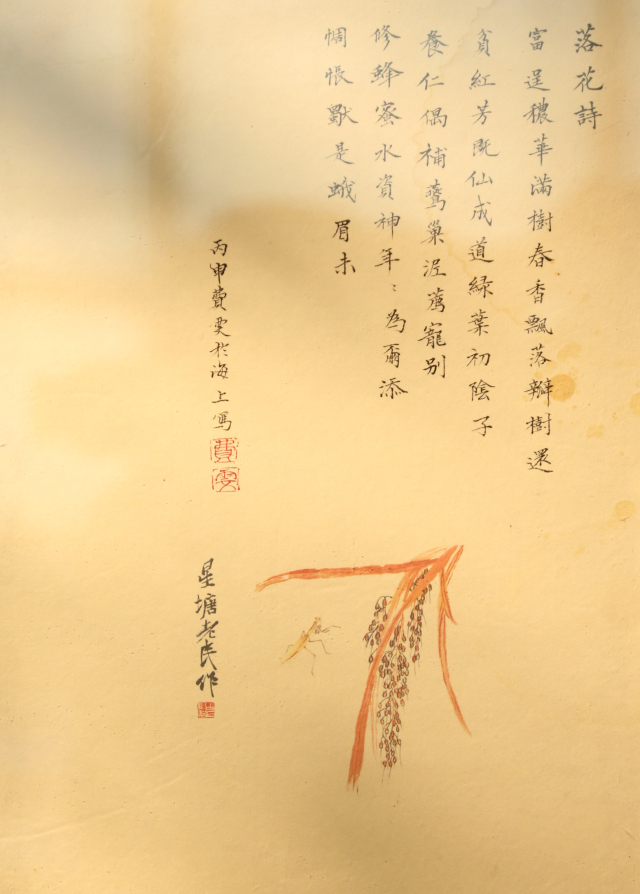 落花詩
富逞穠華滿樹春香飄落瓣樹還
貧紅芳既仙成道綠葉初陰子
養仁偶補鷰巢泥薦寵別
修蜂蜜水資神年〻為爾添
惆悵是蛾眉未
丙申費雯於海上寫
費
雯
星塘老民作